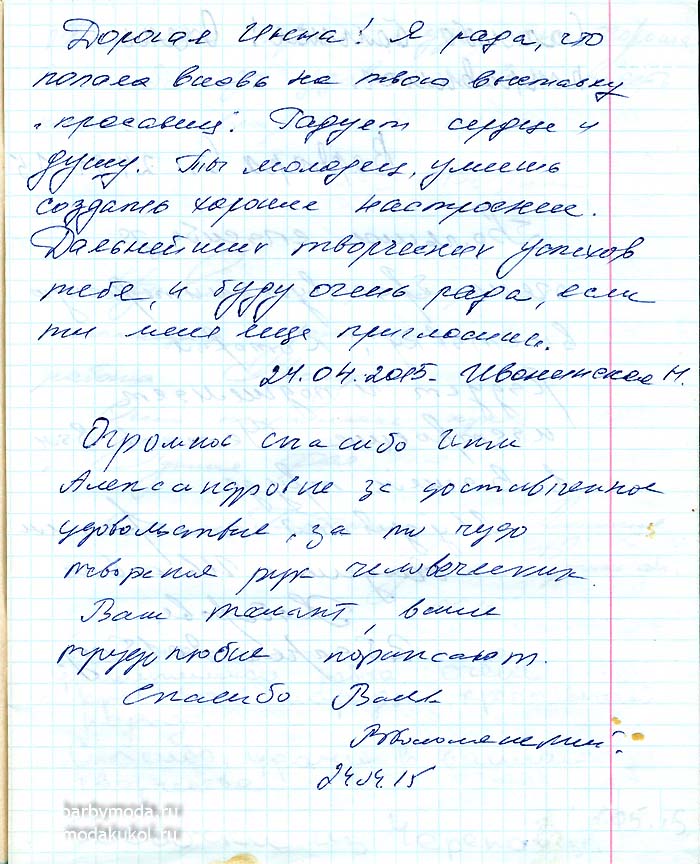 Дорогая Инна! Я рада, что
попала вновь на твою выставку
"красавиц". Радует сердце и
душу. Ты молодец, умеешь
создать хорошее настроение.
Дальнейших творческих успехов
тебе, и буду очень рада, если
ты меня еще пригласишь.
24.04.2015-
Огромное спасибо Инне
Александровне за доставленное
удовольствие, за то чудо
творения рук человеческих.
Ваш талант, ваше
трудолюбие поражают.
Спасибо Вам
24.04.15
barbymoda.ru
modakukol.ru